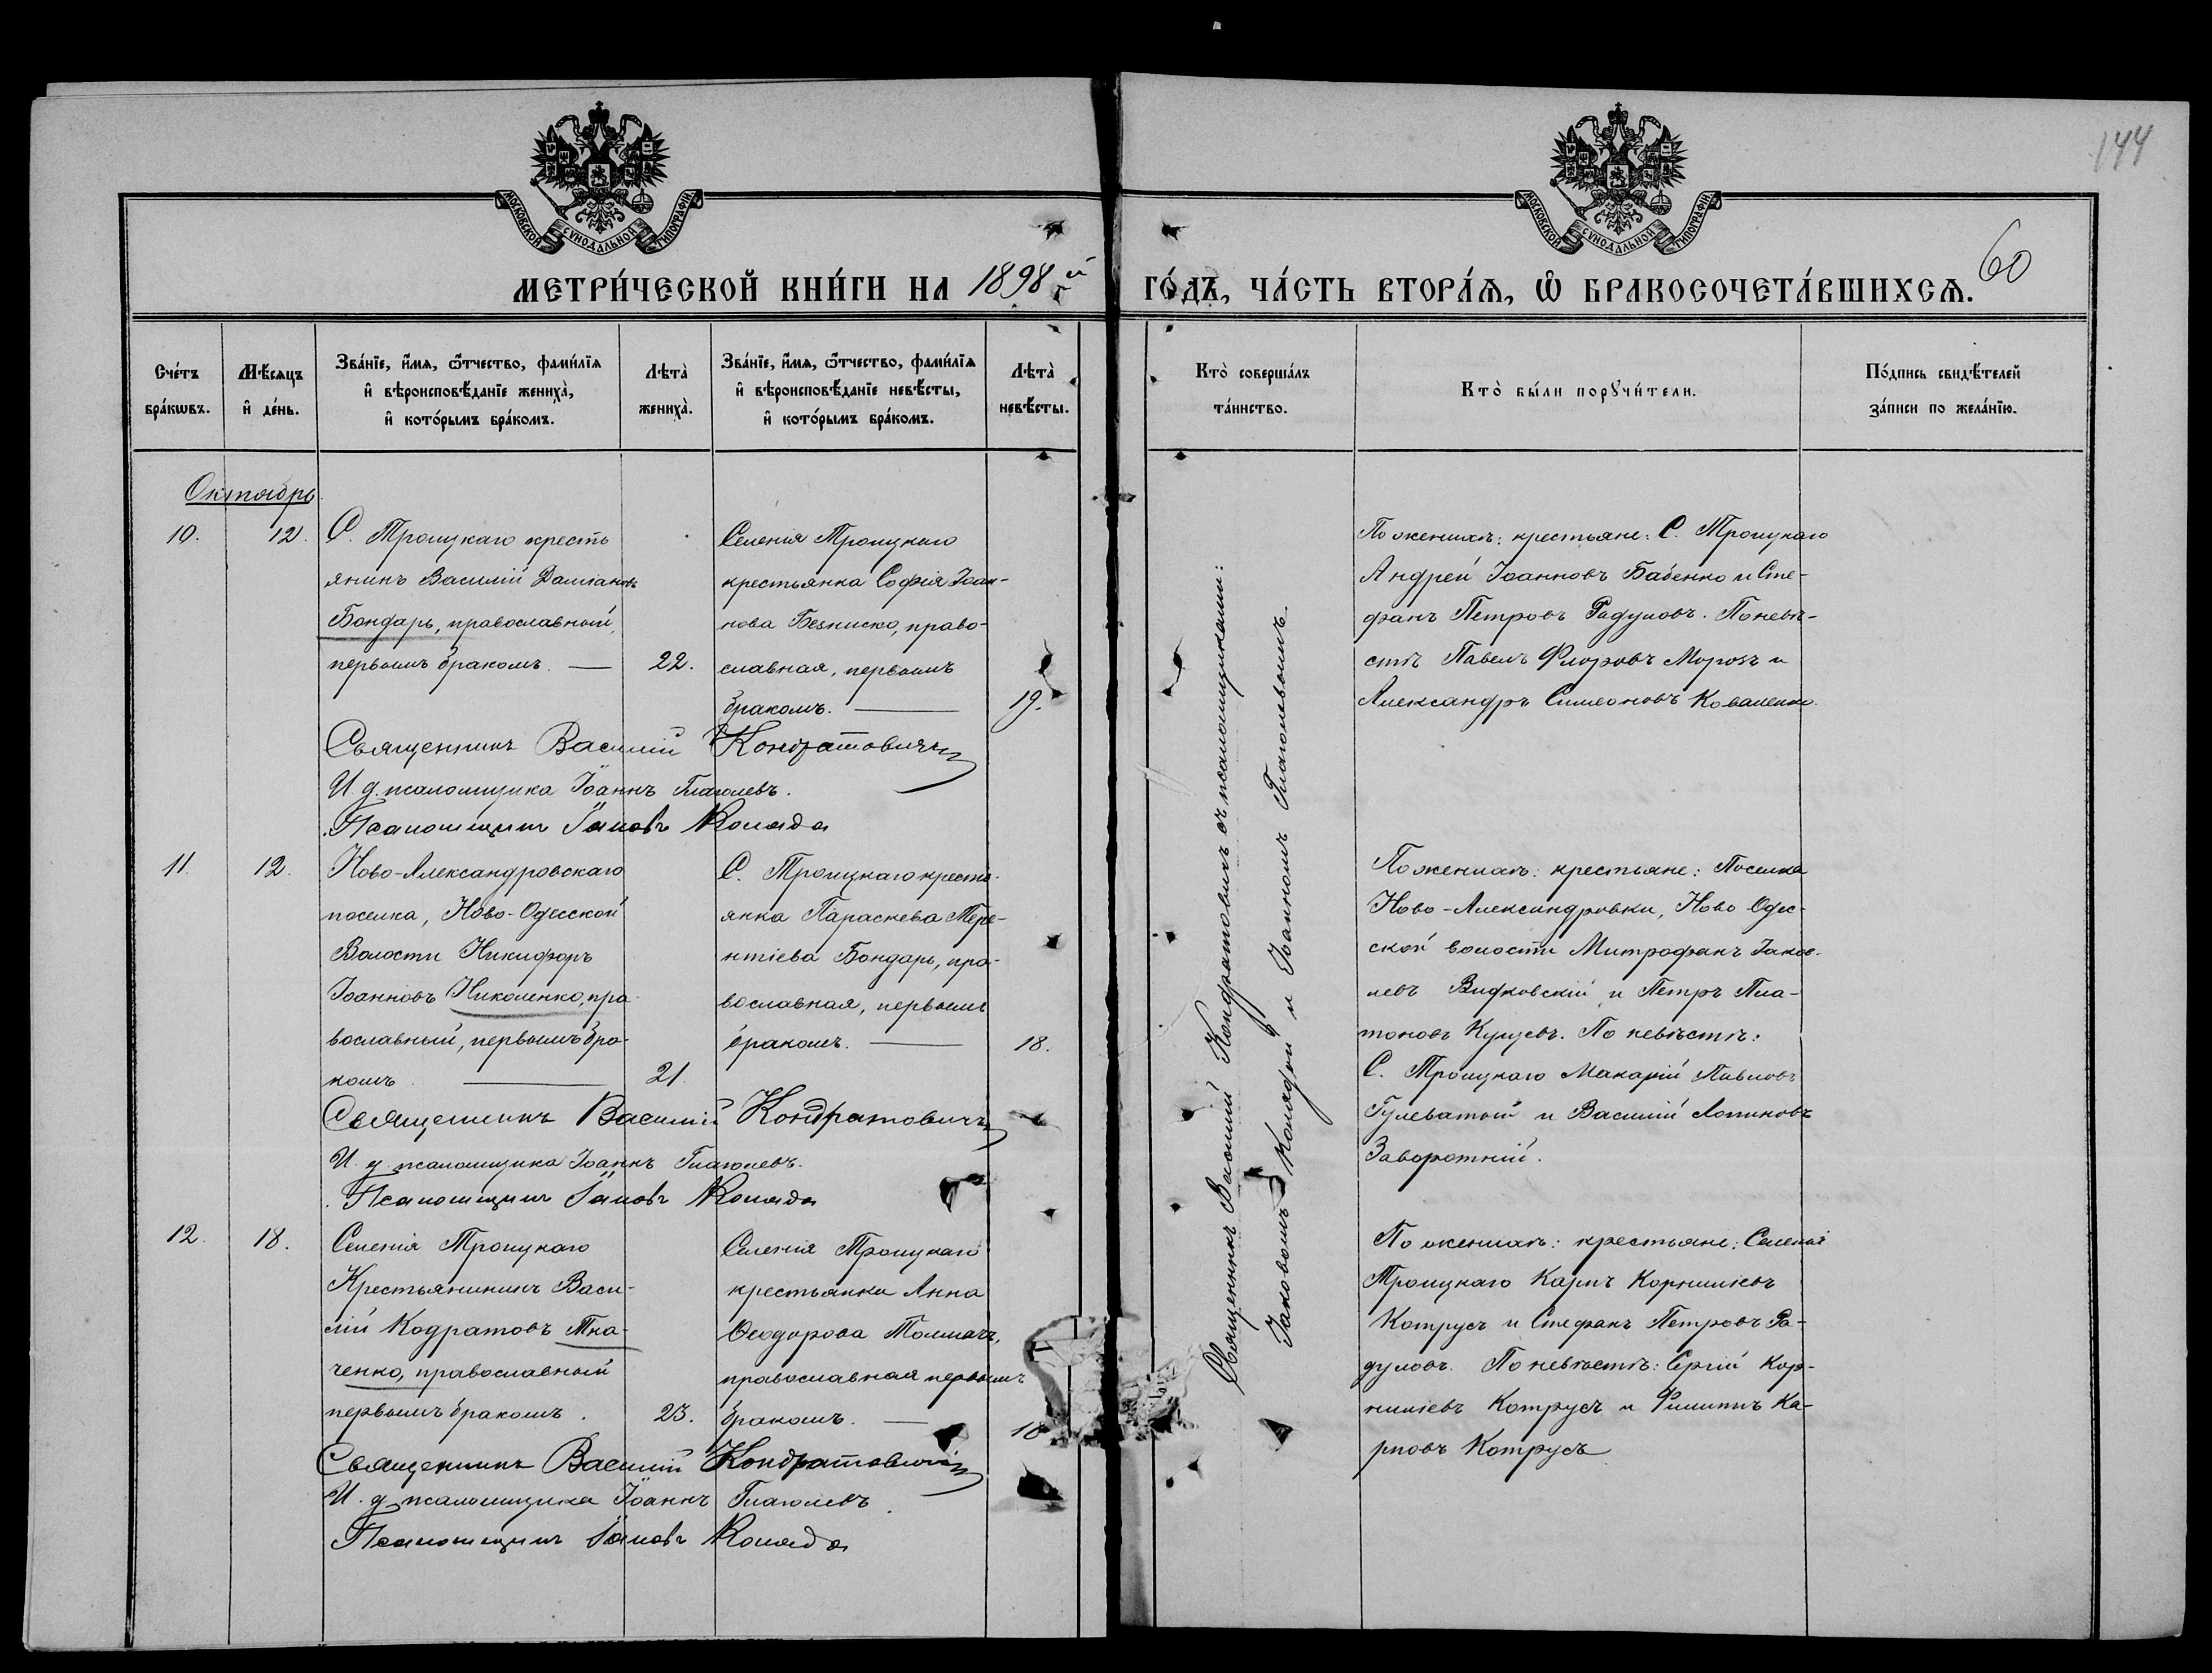 144
МОСКОВСКОЙ СѴНОДАЛЬНОЙ ТИПОГРАФІИ.
МОСКОВСКОЙ СѴНОДАЛЬНОЙ ТИПОГРАФІИ.
60
МЕТРИ́ЧЕСКОЙ КНИ́ГИ НА 1898 й
ГО́ДЪ, ЧА́СТЬ ВТОРА́Ѧ, Ѡ БРАКОСОЧЕТА́ВШИХСѦ.
Сче́тъ
бра́кѡвъ.
Мѣ́сяцъ
и҆ де́нь.
Зва́нїе, и҆́мѧ, ѻ҆́тчество, фами́лїѧ
и҆ вѣроисповѣ́данїе жениха̀,
и҆ кото́рымъ бра́комъ.
Лѣта̀
жениха̀.
Зва́нїе, и҆́мѧ, ѻ҆́тчество, фами́лїѧ
и҆ вѣроисповѣ́данїе невѣ́сты,
и҆ кото́рымъ бра́комъ.
Лѣта̀
невѣ́сты.
Кто̀ соверша́лъ
та́инство.
Кто̀ бы́ли порꙋчи́тели.
По́дпись свидѣ́телей
за́писи по жела́нїю.
Октябрь
10.
12.
С. Троицкаго кресть
янинъ Василій Даміановъ
Бондарь, православный,
первымъ бракомъ.
22.
Селенія Троицкаго
крестьянка Софія Іоан-
нова Безниско, право-
славная, первымъ
бракомъ.
19.
По женихѣ: крестьяне: С. Троицкаго
Андрей Іоанновъ Бабенко и Сте-
фанъ Петровъ Радуловъ. По невѣ-
стѣ Павелъ Флоровъ Морозъ и
Александръ Симеоновъ Коваленко.
Священникъ Василій Кондратовичъ
И. д. псаломщика Іоаннъ Глаголевъ.
Псаломщикъ Іаковъ Коляда
11.
12.
Ново-Александровскаго
поселка, Ново-Одесской
Волости Никифоръ
Іоанновъ Николенко, пра-
вославный, первымъ бра-
комъ
21.
С. Троицкаго кресть-
янка Параскева Тере-
нтіева Бондарь, пра-
вославная, первымъ
бракомъ.
18.
По женихѣ: крестьяне: Поселка
Ново-Александровки, Ново Одес-
ской волости Митрофанъ Іаков-
левъ Видковскій и Петръ Пла-
тоновъ По невѣстѣ:
С. Троицкаго Макарій Павловъ
Гулеватый и Василій Логиновъ
Заворотній.
Священникъ Василій Кондратовичъ
И. д. псаломщика Іоаннъ Глаголевъ.
Псаломщикъ Іаковъ Коляда
12.
18.
Селенія Троицкаго
Крестьянининъ Васи-
лій Кодратовъ Тка-
ченко, православный
первымъ бракомъ.
23.
Селенія Троицкаго
крестьянка Анна
Ѳеодорова Толмачъ,
православная первымъ
бракомъ.
18
По женихѣ: крестьяне: Селенія
Троицкаго Карпъ Корниліевъ
Котрусъ и Стефанъ Петровъ Ра-
дуловъ. По невѣстѣ: Сергій Кор-
ниліевъ Котрусъ и Филиппъ Ка-
рповъ Котрусъ
Священникъ Василій Кондратовичъ
И. д. псаломщика Іоаннъ Глаголевъ
Псаломщикъ Іаковъ Коляда
Священникъ Василій Кондратовичъ съ псаломщиками:
Іаковомъ Колядой и Іоанномъ Глаголевымъ.